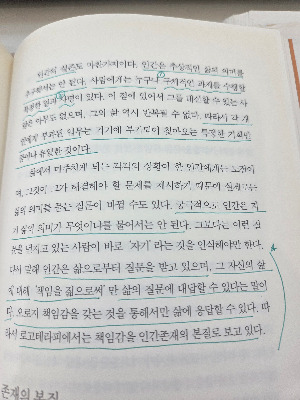 인간의 실존도 마찬가지이다. 인간은 추상적인 삶의 의미를
추구해서는 안 된다. 사람에게는 누구나 구체적인 과제를 수행할
특정한 일과 사명이 있다. 이 점에 있어서 그를 대신할 수 있는 사
람은 아무도 없으며, 그의 삶 역시 반복될 수 없다. 따라서 각 개
인에게 부과된 임무는 거기에 부가되어 찾아오는 특정한 기회만
큼이나 유일한 것이다.
삶에서 마주치게 되는 각각의 상황이 한 인간에게는 도전이
며, 그것이 그가 해결해야 할 문제를 제시하기 때문에 실제로는
삶의 의미를 묻는 질문이 바뀔 수도 있다. 궁극적으로 인간은 자
기 삶의 의미가 무엇이냐를 물어서는 안 된다. 그보다는 이런 질
문을 던지고 있는 사람이 바로 '자기' 라는 것을 인식해야만 한다.
다시 말해 인간은 삶으로부터 질문을 받고 있으며, 그 자신의 삶
에 대해 '책임을 짊으로써' 만 삶의 질문에 대답할 수 있다는 말이
다. 오로지 책임감을 갖는 것을 통해서만 삶에 응답할 수 있다. 따
라서 로고테라피에서는 책임감을 인간존재의 본질로 보고 있다.
존재의 본질